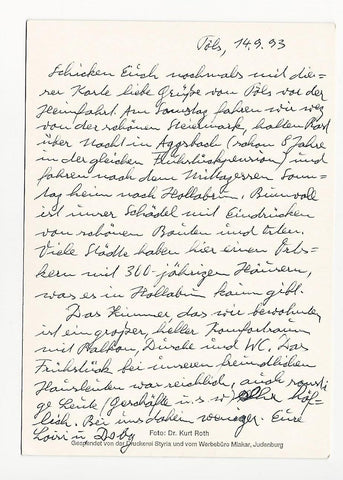 Pöls, 14.9.93
Schicken Euch nochmals mit die=
ser Karte liebe Grüße von Pöls vor der
Heimfahrt. Am Samstag fahren wir weg
von der schönen Steiermark, halten Rast
über Nacht in Aggsbach (schon 8 Jahre
in der gleichen Frühstückspension) und
fahren nach dem Mittagessen Sonn=
tag heim nach Hollabrunn. Bumvoll
ist unser Schädel mit Eindrücken
von schönen Bauten und
Viele Städte haben hier einen Orts=
kern mit 300-jährigen Häusern,
was es in Hollabrunn kaum gibt.
Das Zimmer, das wir bewohnten,
ist ein großer, heller Komfortraum
mit Balkon, Dusche und WC. Das
Frühstück bei unseren freundlichen
Hausleuten war reichlich, auch sonsti
ge Leute (Geschäfte u. s w) sehr höf=
lich. Bei uns daheim weniger. Eure
u.
Foto: Dr. Kurt Roth
Gespendet von der Druckerei Styria und vom Werbebüro Mlakar, Judenburg